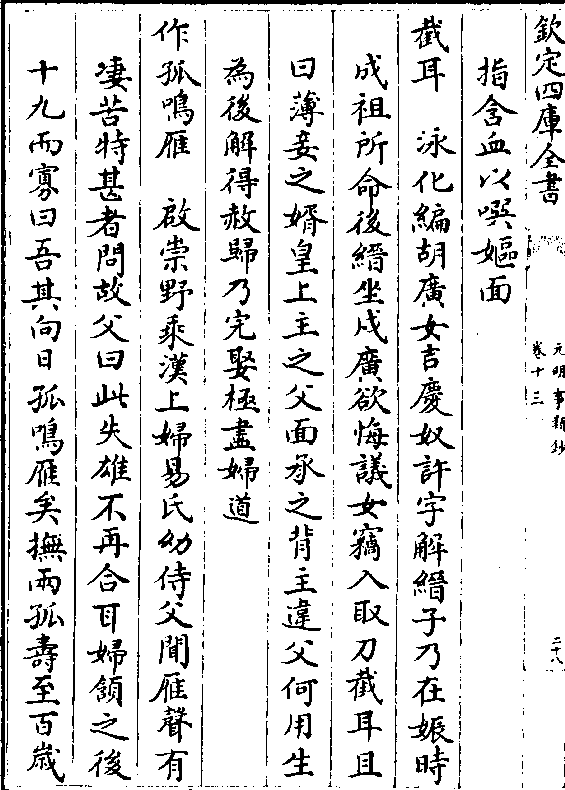 欽定四庫全書
元明事類鈔
卷十三
二十八
指含血以噀嫗面
截耳　泳化編胡廣女吉慶奴許字解縉子乃在娠時
成祖所命後縉坐戍廣欲悔議女竊入取刀截耳且
曰薄妾之婿皇上主之父面承之背主違父何用生
為後解得赦歸乃完娶極盡婦道
作孤鳴雁　啟崇野乘漢上婦易氏幼侍父聞雁聲有
凄苦特甚者問故父曰此失雄不再合耳婦頷之後
十九而寡曰吾其向日孤鳴雁矣撫兩孤壽至百歲